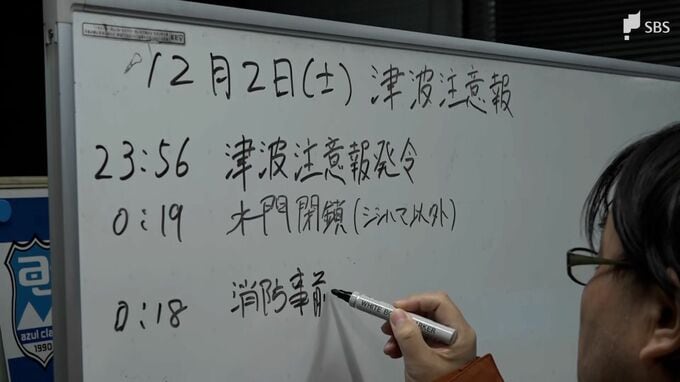 SBS
12月2日(土) 津波注意報
23:56 津波注意報発令
0:19 水門閉鎖(ジハイで以外)
0:18 消防事前
WHITE BOARD MARKER
azul cla
1990